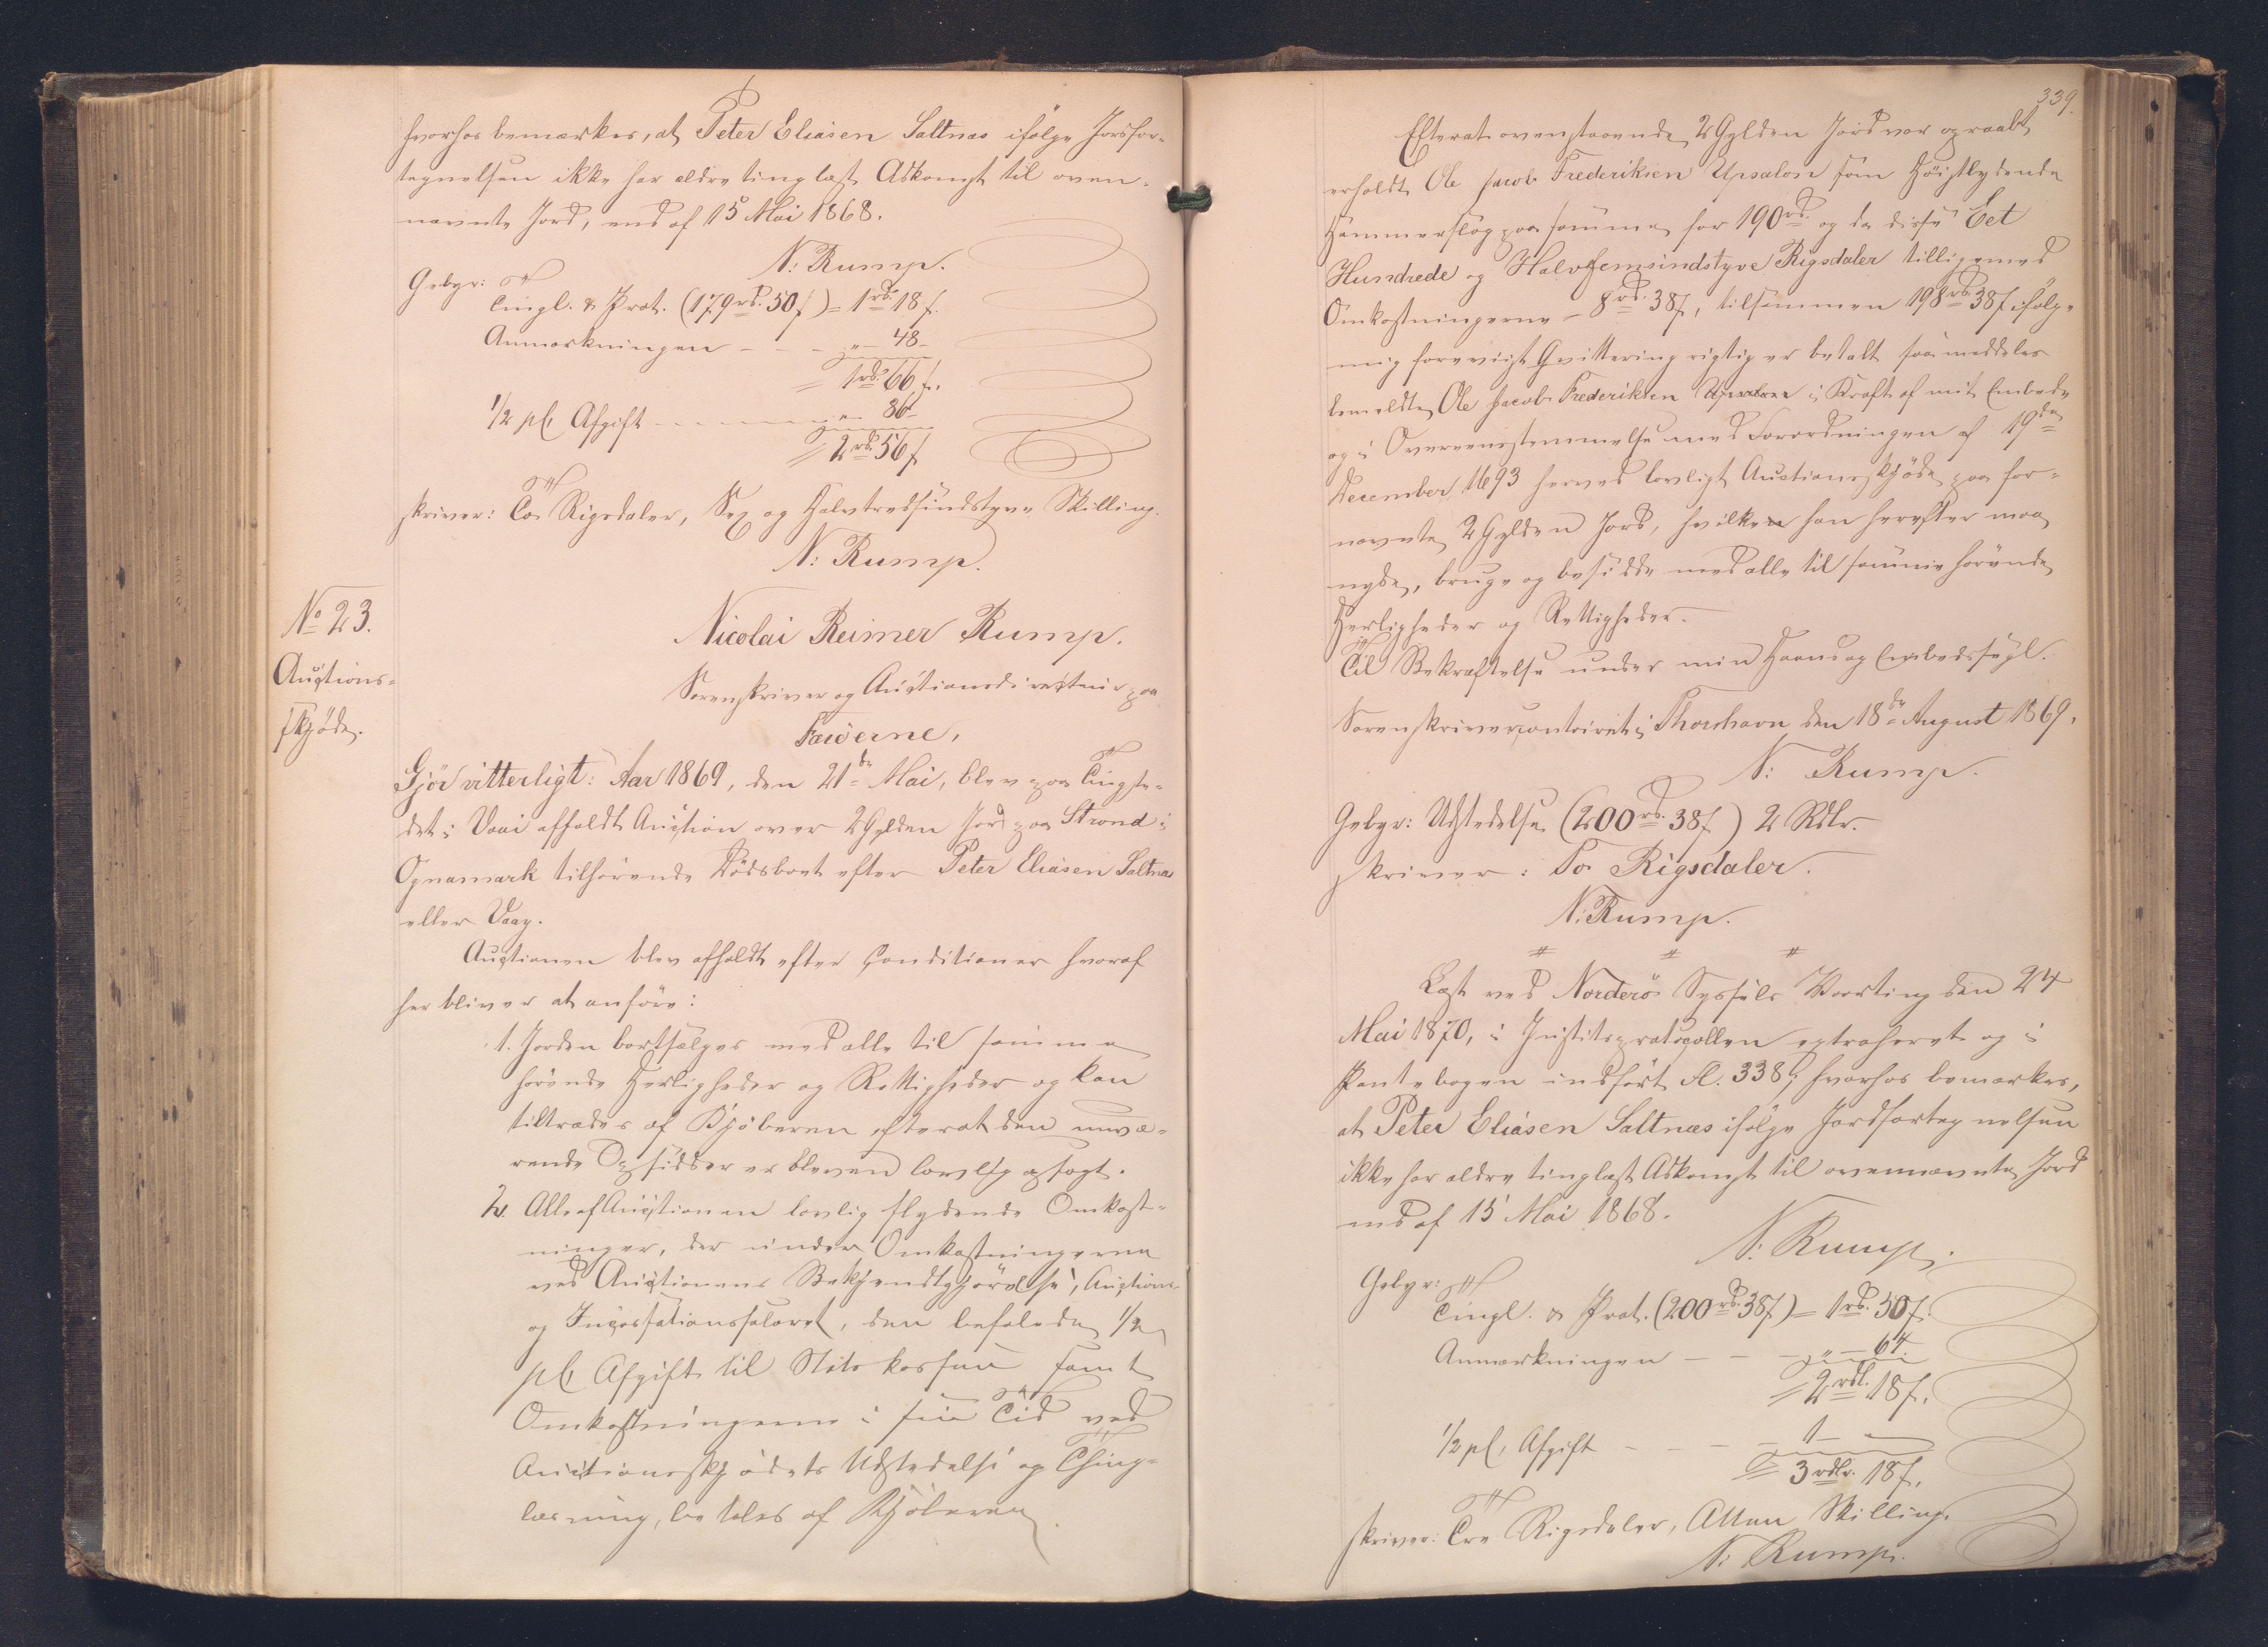 hvorhos bemærkes, at Peter Eliasen Saltnæs ifølge Jordfor-
tegnelsen ikke har ældre tinglæst Adkomst til oven-
nævnte Jord, end af 15 Mai 1868.
N: Rump.
Gebyr:
Tingl. & Prot. (179 rd. 50 ſ) = 1 rd. 18 ſ.
Anmærkningen - - - „ - 48 -
1 rd. 66 ſ.
1/2 pC Afgift - - - - „ - 86 -
2 rd. 56 ſ
skriver: To Rigsdaler, Sex og Halvtredsindstyve Skilling.
N: Rump.
No 23.
Auctions-
skjøde.
Nicolai Reimer Rump.
Sorenskriver og Auctionsdirecteur paa
Færøerne,
Gjør vitterligt: Aar 1869, den 21de Mai, blev paa Tingste-
det i Vaai afholdt Auction over 2 Gylden Jord paa Strond i
Ognamark tilhørende Dødsboet efter Peter Eliasen Saltnæs
eller Vaag.
Auctionen blev afholdt efter Conditioner hvoraf
her bliver at anføre:
1. Jorden bortsælges med alle til samme
hørende Herligheder og Rettigheder og kan
tiltrædes af Kjøberen efterat den nuvæ-
rende Opsidder er bleven lovlig opsagt.
2. Alle af Auctionen lovlig flydende Omkost-
ninger, der under Omkostningerne
ved Auctionens Bekjendtgjørelse, Auctions-
og Incassationssalaret, den befalede 1/2
pC Afgift til Statskassen samt
Omkostningerne i sin Tid ved
Auctionsskjødets Udstedelse og Thing-
læsning, betales af Kjøberen.
339.
Efterat ovenstaaende 2 Gylden Jord var opraabt,
erholdt Ole Jacob Frederiksen Upsalose som Høistbydende
Hammerslag paa samme for 190 rd. og da disse Eet
Hundrede og Halvfemsindstyve Rigsdaler tilligemed
Omkostningerne - 8 rd. 38 ſ, tilsammen 198 rd. 38 ſ ifølge
mig foreviist Qvittering rigtig er betalt saa meddeles
bemeldte Ole Jacob Frederiksen i Kraft af mit Embede
og i Overeensstemmelse med Forordningen af 19de
December 1693 herved lovligt Auctionsskjøde paa for-
nævnte 2 Gylden Jord, hvilken han herefter maa
nyde, bruge og besidde med alle til samme hørende
Herligheder og Rettigheder.
Til Bekræftelse under min Haand og Embedssegl.
Sorenskrivercontoiret i Thorshavn den 18de August 1869.
N: Rump.
Gebyr: Udstedelse (200 rd. 38 ſ) 2 Rdlr.
skriver: To Rigsdaler.
N: Rump.
# # #
Læst ved Norderø Syssels Vaarting den 24
Mai 1870, i Justitsprotocollen extraheret og i
Pantebogen indført Fl. 338; hvorhos bemærkes,
at Peter Eliasen Saltnæs ifølge Jordfortegnelsen
ikke har ældre tinglæst Adkomst til ovennævnte Jord
end af 15 Mai 1868.
N: Rump.
Gebyr:
Tingl. & Prot. (200 rd. 38 ſ) = 1 rd. 50 ſ.
Anmærkningen - - - „ - 64.
2 rdl. 18 ſ.
1/2 pC. Afgift - - - - 1 -
3 rdlr. 18 ſ.
skriver: Tre Rigsdaler, Atten Skilling.
N: Rump.